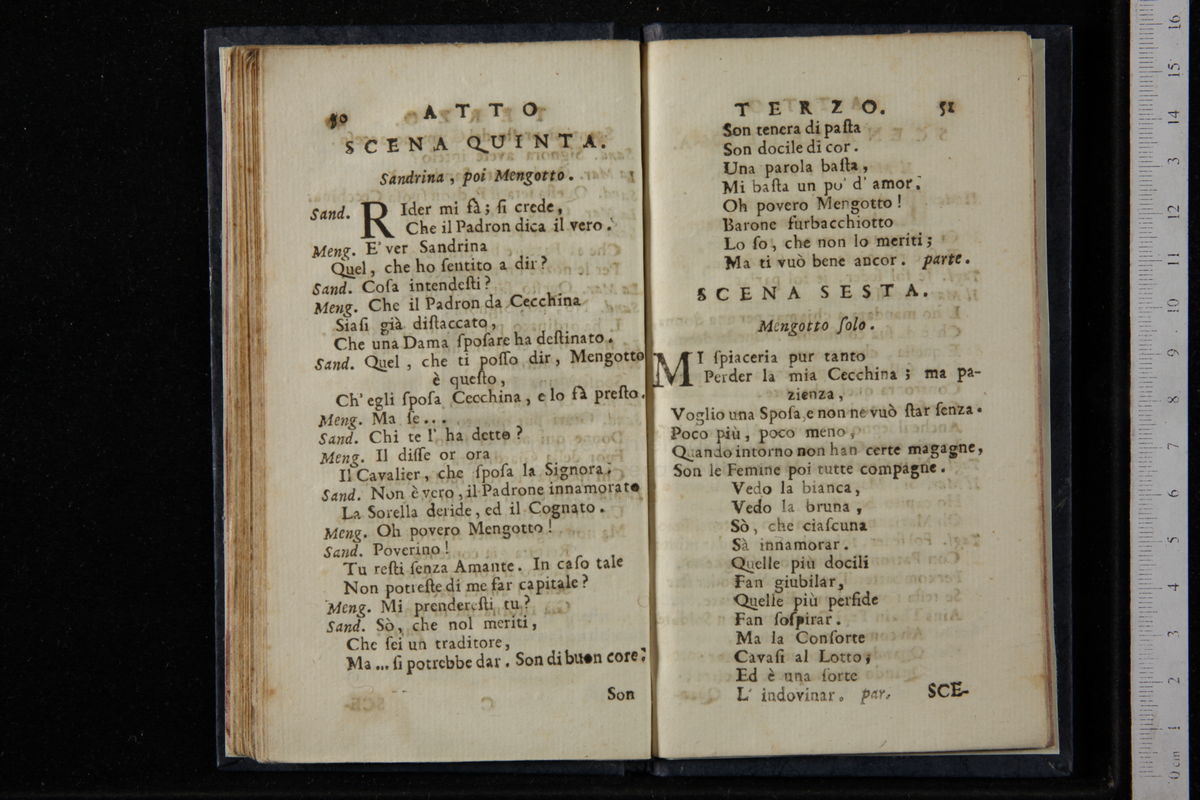 50 ATTO
SCENA QUINTA.
Sandrina, poi Mengotto.
Sand. RIder mi fà; ſi crede,
Che il Padron dica il vero.
Meng. E' ver Sandrina
Quel, che ho ſentito a dir?
Sand. Coſa intendeſti?
Meng. Che il Padron da Cecchina
Siaſi già diſtaccato,
Che una Dama ſpoſare ha deſtinato.
Sand. Quel, che ti poſſo dir, Mengotto
è queſto,
Ch' egli ſpoſa Cecchina, e lo fà preſto.
Meng. Ma ſe...
Sand. Chi te l' ha detto?
Meng. Il diſſe or ora
Il Cavalier, che ſpoſa la Signora.
Sand. Non è vero, il Padrone innamorato
La Sorella deride, ed il Cognato.
Meng. Oh povero Mengotto!
Sand. Poverino!
Tu reſti ſenza Amante. In caſo tale
Non potreſte di me far capitale?
Meng. Mi prendereſti tu?
Sand. Sò, che nol meriti,
Che ſei un traditore,
Ma... ſi potrebbe dar. Son di buon core:
Son
TERZO. 51
Son tenera di paſta
Son docile di cor.
Una parola baſta,
Mi baſta un po' d' amor.
Oh povero Mengotto!
Barone furbacchiotto
Lo ſo, che non lo meriti;
Ma ti vuò bene ancor. parte.
SCENA SESTA.
Mengotto ſolo.
MI ſpiaceria pur tanto
Perder la mia Cecchina; ma pa-
zienza,
Voglio una Spoſa e non ne vuò ſtar ſenza.
Poco più, poco meno,
Quando intorno non han certe magagne,
Son le Femine poi tutte compagne.
Vedo la bianca,
Vedo la bruna,
Sò, che ciaſcuna
Sà innamorar.
Quelle più docili
Fan giubilar,
Quelle più perfide
Fan ſoſpirar.
Ma la Conſorte
Cavaſi al Lotto,
Ed è una ſorte
L' indovinar. par.
SCE-
16
15
14
13
12
11
10
9
8
7
6
5
4
3
2
1
0 cm